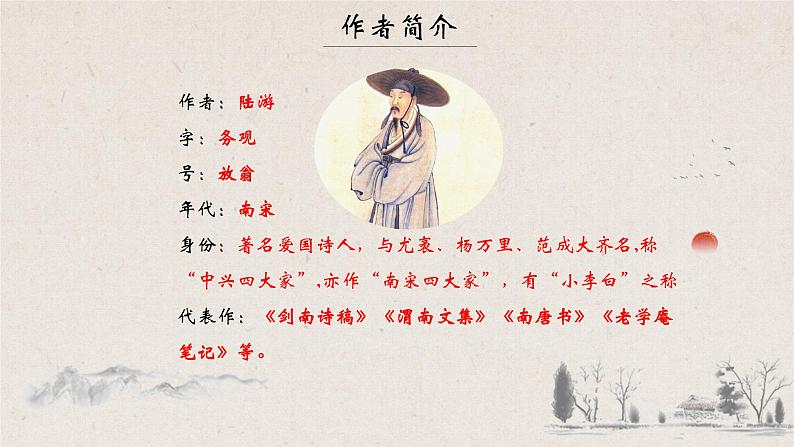 作者简介
作者：陆游
字：务观
号：放翁
年代：南宋
身份：著名爱国诗人，与尤袤、杨万里、范成大齐名,称
“中兴四大家”,亦作“南宋四大家”，有“小李白”之称
代表作：《剑南诗稿》《渭南文集》《南唐书》《老学庵
笔记》等。